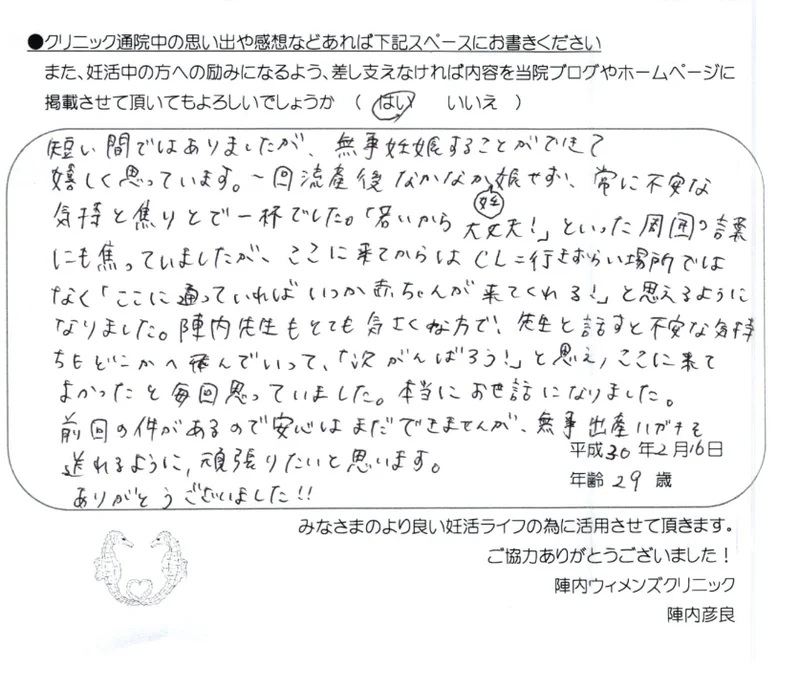 ●クリニック通院中の思い出や感想などあれば下記スペースにお書きください
また、妊活中の方への励みになるよう、差し支えなければ内容を当院ブログやホームページに
掲載させて頂いてもよろしいでしょうか （ はい　いいえ ）
短い間ではありましたが、無事妊娠することができて
嬉しく思っています。一回流産後なかなか妊娠せず、常に不安な
気持と焦りとで一杯でした。「若いから大丈夫！」といった周囲の言葉
にも焦っていましたが、ここに来てからは 行きずらい場所では
なく「ここに通っていればいつか赤ちゃんが来てくれる！」と思えるように
なりました。陣内先生もとても気さくな方で、先生と話すと不安な気持
ちもどこかへ飛んでいって、「次がんばろう！」と思え、ここに来て
よかったと毎回思っていました。本当にお世話になりました。
前回の件があるので安心はまだできませんが、無事出産ハガキを
送れるように、頑張りたいと思います。
ありがとうございました!!
平成30年2月16日
年齢 29 歳
みなさまのより良い妊活ライフの為に活用させて頂きます。
ご協力ありがとうございました！
陣内ウィメンズクリニック
陣内彦良